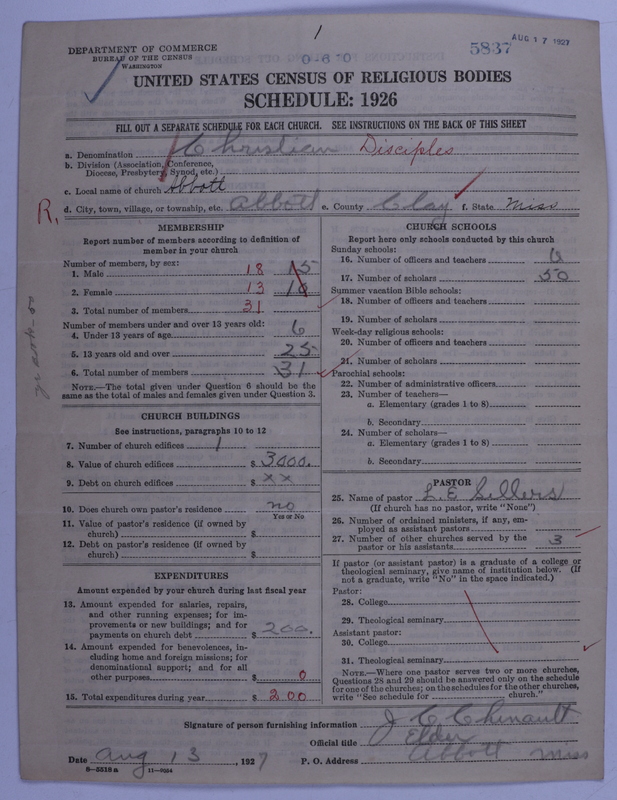 1
DEPARTMENT OF COMMERCE
BUREAU OF THE CENSUS
WASHINGTON
0-6-0
5837
AUG 17 1927
UNITED STATES CENSUS OF RELIGIOUS BODIES
SCHEDULE: 1926
FILL OUT A SEPARATE SCHEDULE FOR EACH CHURCH. SEE INSTRUCTIONS ON THE BACK OF THIS SHEET
a. Denomination Christian Disciples
b. Division (Association, Conference, Diocese, Presbytery, Synod, etc.)
c. Local name of church Abbott
R.
d. City, town, village, or township, etc. Abbott e. County Clay f. State Miss
MEMBERSHIP
Report number of members according to definition of
member in your church
Number of members, by sex:
1. Male 18 15
2. Female 13
3. Total number of members 31
Number of members under and over 13 years old:
4. Under 13 years of age 6
5. 13 years old and over 25
6. Total number of members 31
NOTE.—The total given under Question 6 should be the
same as the total of males and females given under Question 3.
CHURCH BUILDINGS
See instructions, paragraphs 10 to 12
7. Number of church edifices 1
8. Value of church edifices $ 3000.
9. Debt on church edifices $ x x
10. Does church own pastor's residence no
Yes or No
11. Value of pastor's residence (if owned by
church) $
12. Debt on pastor's residence (if owned by
church) $
EXPENDITURES
Amount expended by your church during last fiscal year
13. Amount expended for salaries, repairs,
and other running expenses; for im-
provements or new buildings; and for
payments on church debt $ 200.
14. Amount expended for benevolences, in-
cluding home and foreign missions; for
denominational support; and for all
other purposes $ 0
15. Total expenditures during year $ 200
CHURCH SCHOOLS
Report here only schools conducted by this church
Sunday schools:
16. Number of officers and teachers 6
17. Number of scholars 50
Summer vacation Bible schools:
18. Number of officers and teachers
19. Number of scholars
Week-day religious schools:
20. Number of officers and teachers
21. Number of scholars
Parochial schools:
22. Number of administrative officers
23. Number of teachers—
a. Elementary (grades 1 to 8)
b. Secondary
24. Number of scholars—
a. Elementary (grades 1 to 8)
b. Secondary
PASTOR
25. Name of pastor L. E Sellers
(If church has no pastor, write "None")
26. Number of ordained ministers, if any, em-
ployed as assistant pastors
27. Number of other churches served by the
pastor or his assistants 3
If pastor (or assistant pastor) is a graduate of a college or
theological seminary, give name of institution below. (If
not a graduate, write "No" in the space indicated.)
Pastor:
28. College
29. Theological seminary
Assistant pastor:
30. College
31. Theological seminary
NOTE.—Where one pastor serves two or more churches,
Questions 28 and 29 should be answered only on the schedule
for one of the churches; on the schedules for the other churches,
write "See schedule for church."
Signature of person furnishing information J C Chinault
Official title Elder
Date Aug 13, 1927 P. O. Address Abbott Miss
8-5518a 11-9064